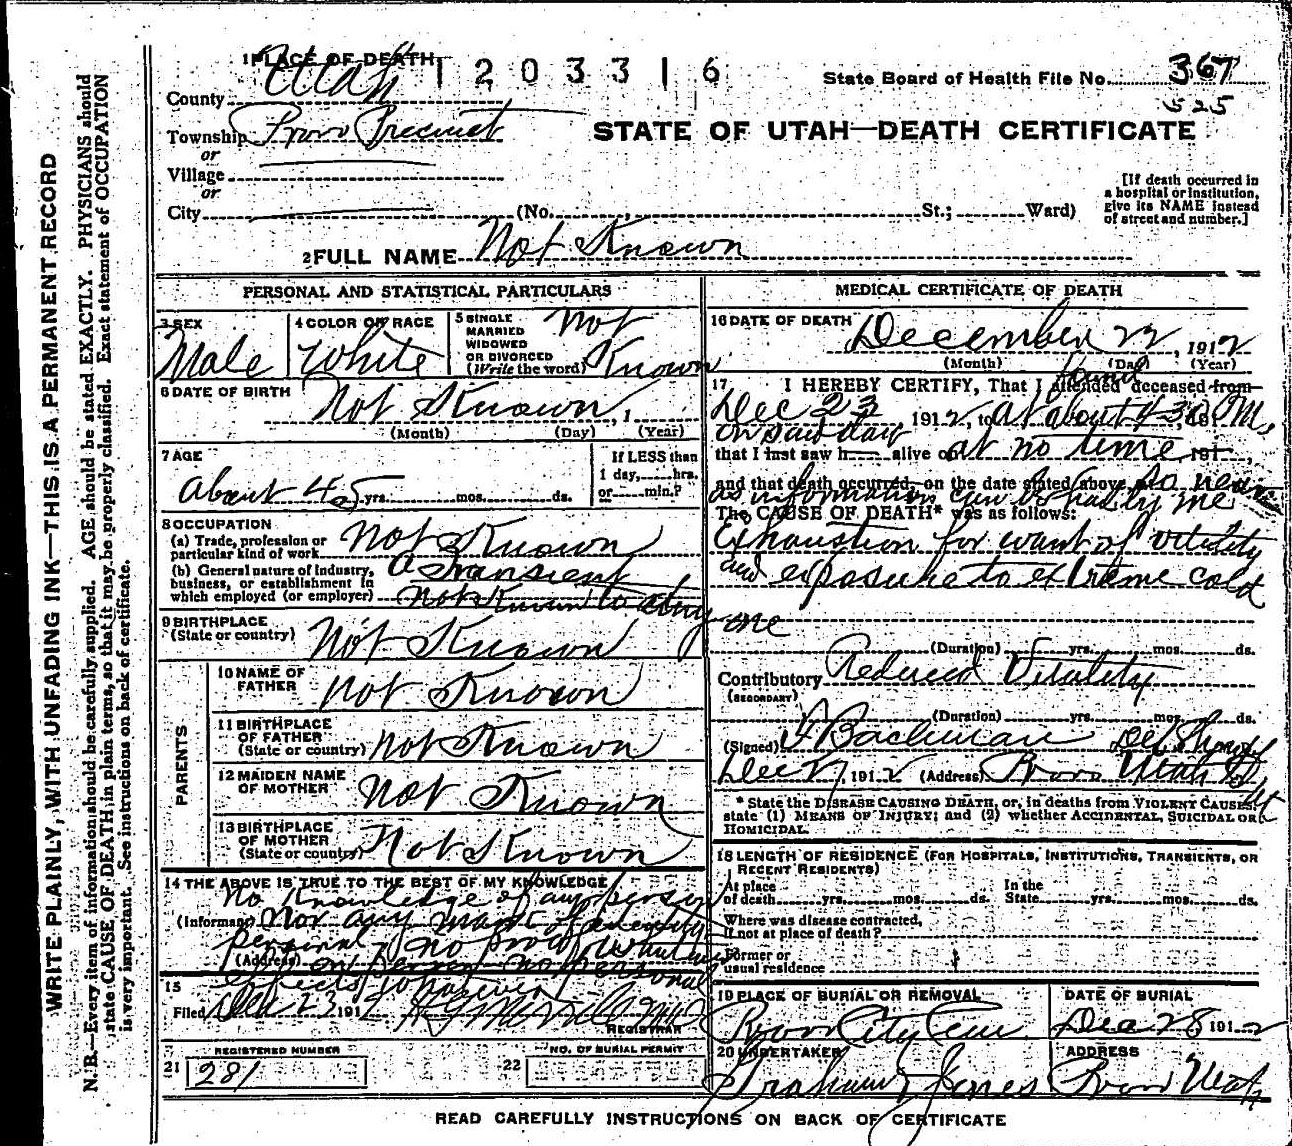 1 PLACE OF DEATH
1203316
State Board of Health File No. 367
525
County Utah
Township Provo Precinct
STATE OF UTAH—DEATH CERTIFICATE
or
Village
or
City (No. , St.; Ward)
[If death occurred in
a hospital or institution,
give its NAME instead
of street and number.]
2 FULL NAME Not Known
PERSONAL AND STATISTICAL PARTICULARS
3 SEX
Male
4 COLOR OR RACE
White
5 SINGLE
MARRIED
WIDOWED
OR DIVORCED
(Write the word)
Not
Known
6 DATE OF BIRTH
Not Known, 1
(Month) (Day) (Year)
7 AGE
About 45 yrs. mos. ds.
If LESS than
1 day, hrs.
or min.?
8 OCCUPATION
(a) Trade, profession or
particular kind of work Not Known
(b) General nature of industry,
business, or establishment in
which employed (or employer)
A Transient
Not Known to any one
9 BIRTHPLACE
(State or country) Not Known
PARENTS
10 NAME OF
FATHER Not Known
11 BIRTHPLACE
OF FATHER
(State or country) Not Known
12 MAIDEN NAME
OF MOTHER Not Known
13 BIRTHPLACE
OF MOTHER
(State or country) Not Known
14 THE ABOVE IS TRUE TO THE BEST OF MY KNOWLEDGE
No Knowledge of any person
(Informant) Nor any
(Address)
no personal
effects whatever
15
Filed Dec 23 1912
REGISTRAR
21 REGISTERED NUMBER
281
22 NO. OF BURIAL PERMIT
MEDICAL CERTIFICATE OF DEATH
16 DATE OF DEATH
December 22, 1912
(Month) (Day) (Year)
17 I HEREBY CERTIFY, That I attended found deceased from
Dec 23 1912, to at about 4 30 PM,
on said day
that I last saw h alive on at no time, 191 ,
and that death occurred, on the date stated above, so near
as information can be had by me
The CAUSE OF DEATH* was as follows:
Exhaustion for want of vitality
and exposure to extreme cold
(Duration) yrs. mos. ds.
Contributory Reduced Vitality
(SECONDARY)
(Duration) yrs. mos. ds.
(Signed) Bachman
Dec 27, 1912 (Address) Provo Utah
* State the DISEASE CAUSING DEATH, or, in deaths from VIOLENT CAUSES,
state (1) MEANS OF INJURY; and (2) whether ACCIDENTAL, SUICIDAL OR
HOMICIDAL.
18 LENGTH OF RESIDENCE (FOR HOSPITALS, INSTITUTIONS, TRANSIENTS, OR
RECENT RESIDENTS)
At place
of death yrs. mos. ds.
In the
State yrs. mos. ds.
Where was disease contracted,
if not at place of death?
Former or
usual residence
19 PLACE OF BURIAL OR REMOVAL
Provo City Cem
DATE OF BURIAL
Dec 28 1912
20 UNDERTAKER
Graham Jones
ADDRESS
Provo Utah
READ CAREFULLY INSTRUCTIONS ON BACK OF CERTIFICATE
WRITE PLAINLY, WITH UNFADING INK—THIS IS A PERMANENT RECORD
N. B.—Every item of information should be carefully supplied. AGE should be stated EXACTLY. PHYSICIANS should
state CAUSE OF DEATH in plain terms, so that it may be properly classified. Exact statement of OCCUPATION
is very important. See instructions on back of certificate.